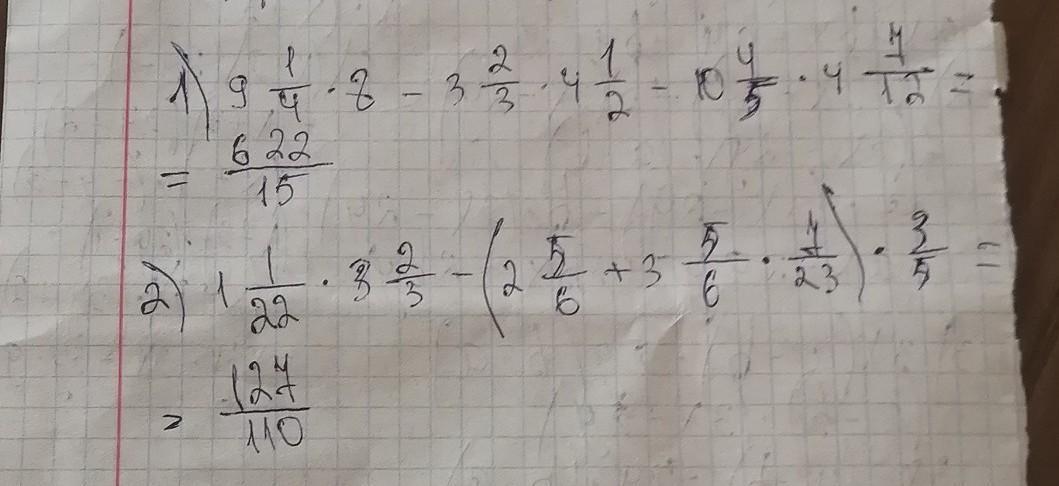 1) 9 1/4 · 8 - 3 2/3 · 4 1/2 - 10 4/5 · 4 7/12 =
= 622/15
2) 1 1/22 · 3 2/3 - (2 5/6 + 3 5/6 · 7/23) · 3/5 =
= 127/110